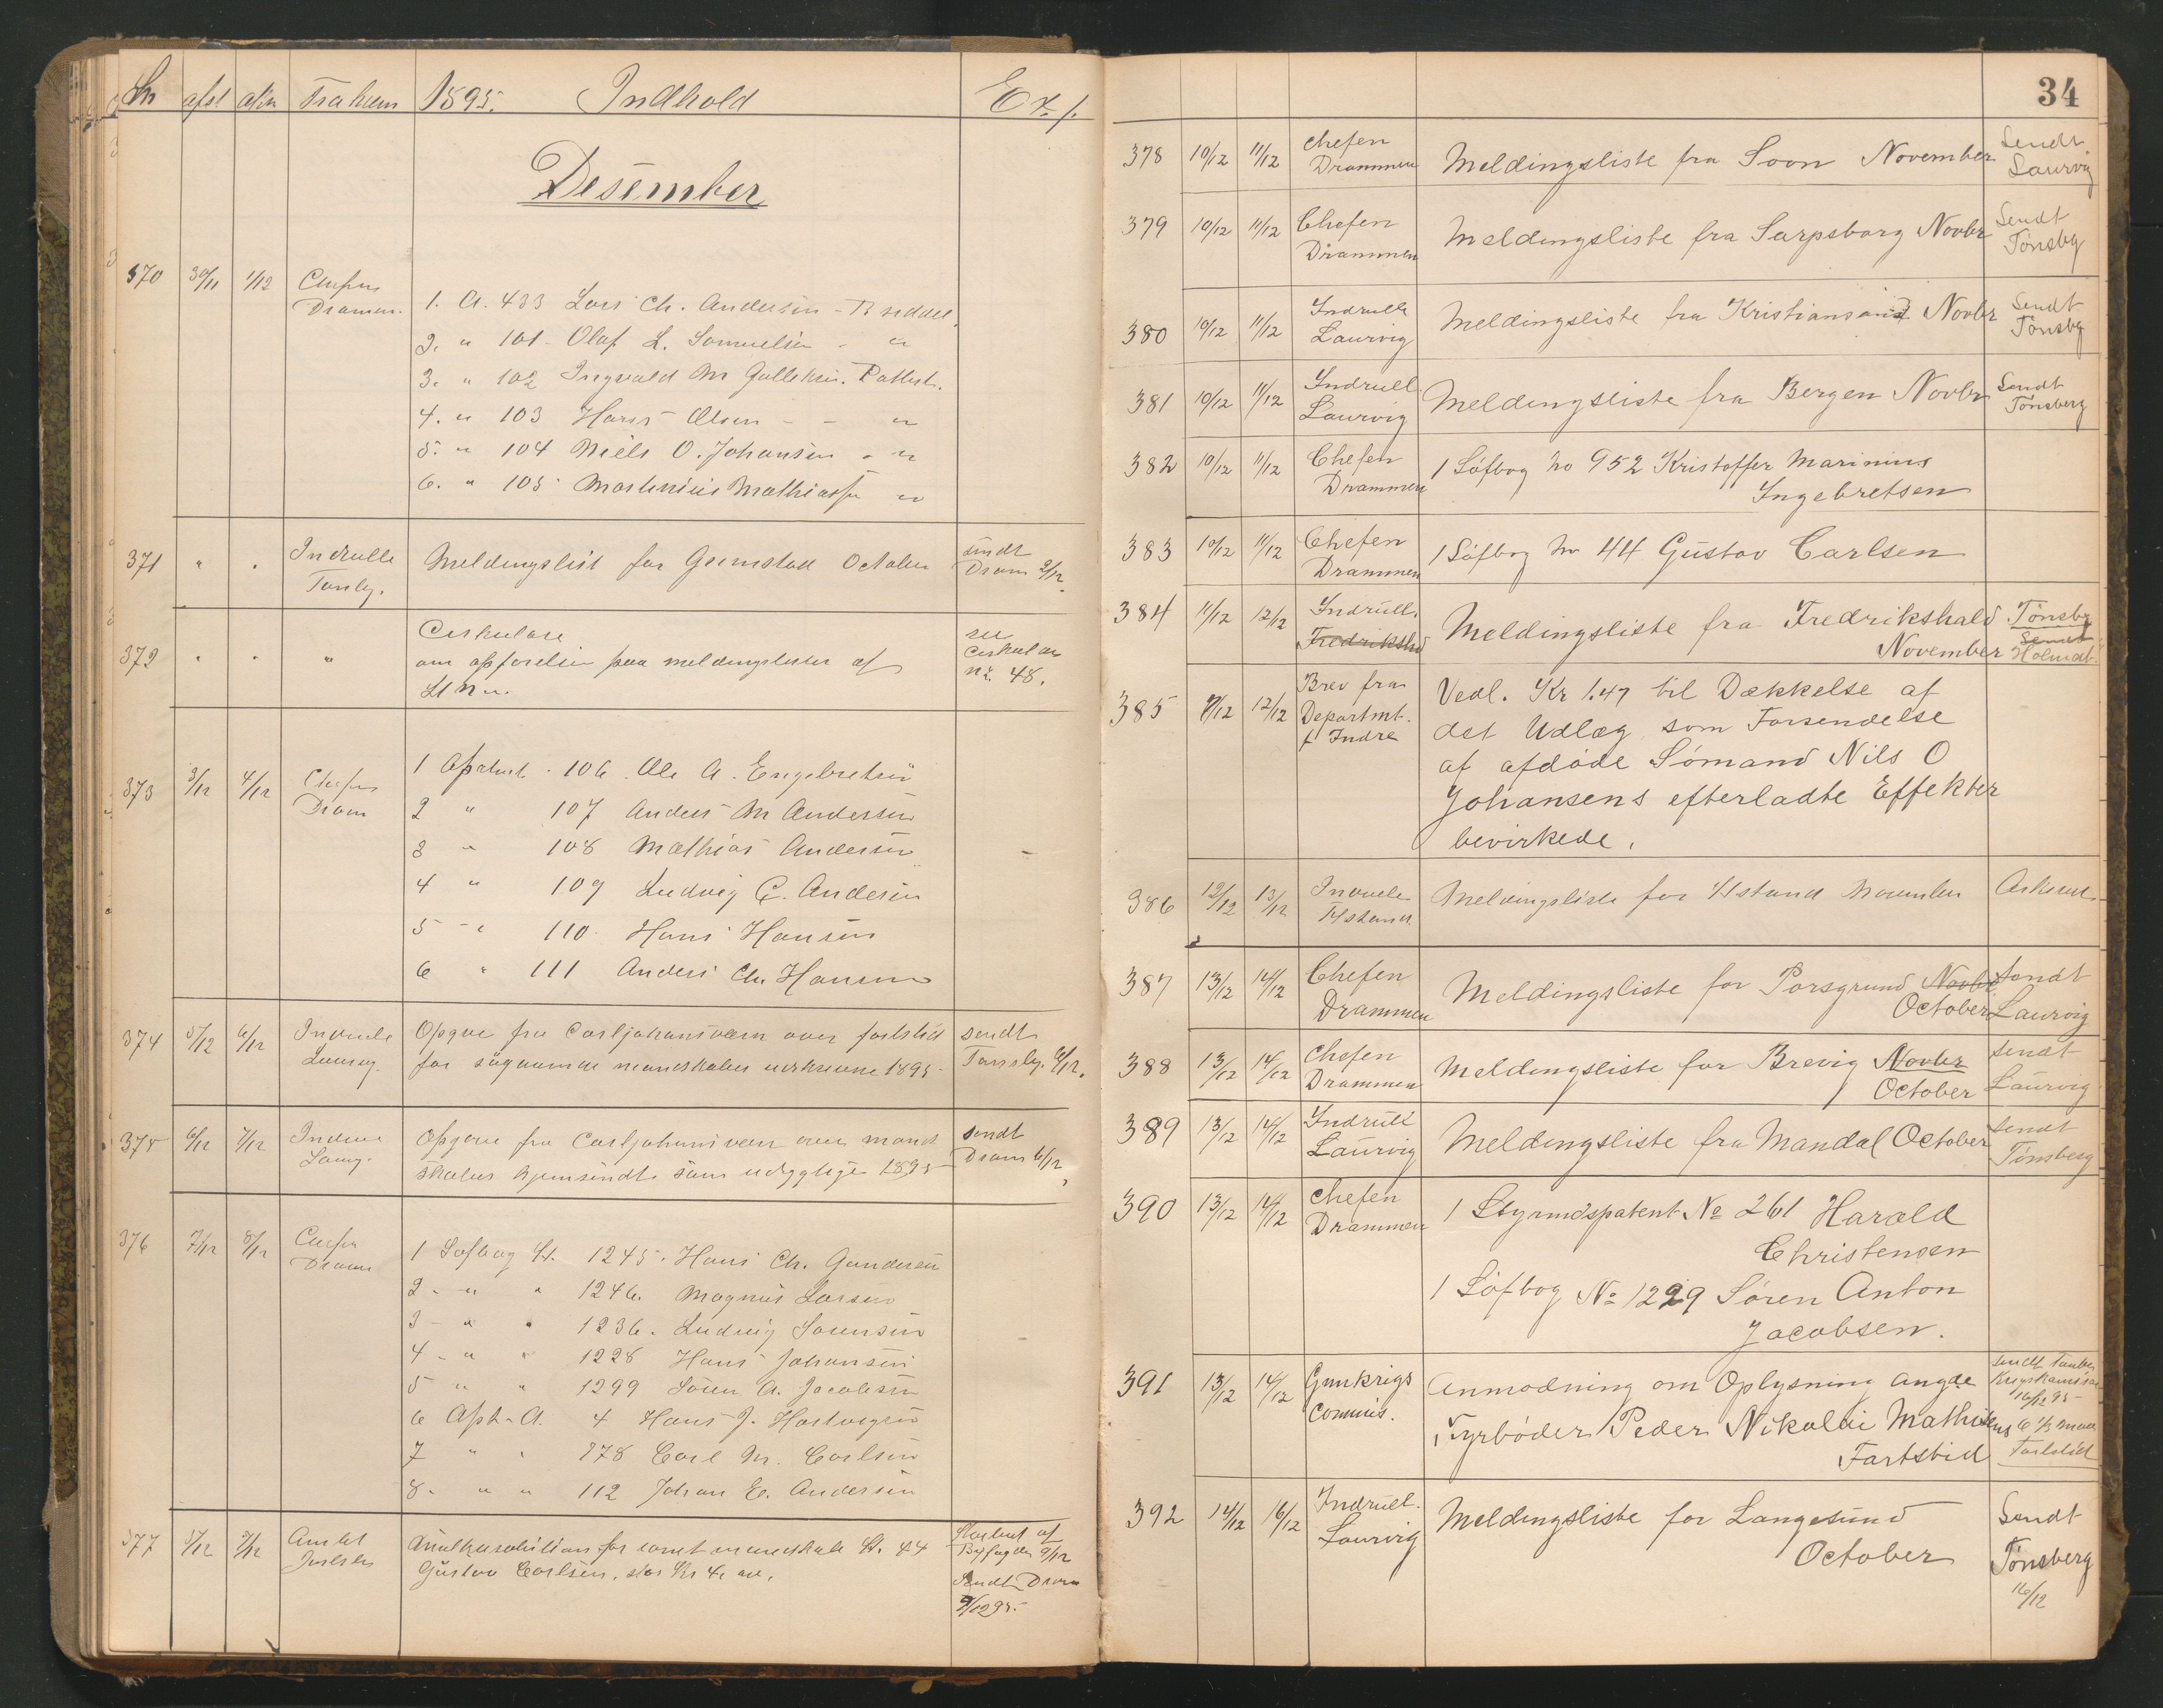 afst ank Fra hvem 1895. Indhold Ex.
Desember
370 30/11 1/12 Chefen
Dramen.
1. A. 433 Lars Ch. Andersen
2. " 101 Olaf L. Samuelsen - "
3. " 102 Ingvald M
4. " 103 Hans Olsen - - "
5. " 104 Niels O. Johansen - "
6. " 105 Martinius Mathiassen "
371 " " Indrulle
Tønsbg.
Meldingslist for Grimstad October
sendt
Dram 2/12
372 " " "
Cirkulære
om opførelsen paa meldingslister af
see
Cirkulær
No. 48.
373 3/12 4/12 Chefen
Dram
1 106 Ole A. Engebretsen
2 " 107 Anders M Andersen
3 " 108 Mathias Andersen
4 " 109 Ludvig C. Andersen
5 " 110 Hans Hansen
6 " 111 Anders Chr Hansen
374 5/12 6/12
Opgave fra Carljohansværn over fartstid
for 1895
sendt
Tønsbg. 6/12.
375 6/12 7/12
Opgave fra Carljohansværn over mand
skaber hjemsendt som udygtige 1895
sendt
Dram 6/12
376 7/12 8/12 Chefen
Dram
1 Søfbog Lt. 1245. Hans Ch. Gundersen
2 - " " 1246. Magnus Larsen
3 - " " 1236. Ludvig Sørensen
4 - " " 1228 Hans Johansen
5 " " 1299 Søren A. Jacobsen
6 A. 4 Hans J. Hartvigsen
7 " " 178 Carl M. Carlsen
8. " " 112 Johan E. Andersen
377 Amtet
Gustav Carlsen
Byfogden 9/12
Sendt Dram
9/12 95.
34
378 10/12 11/12 Chefen
Drammen
Meldingsliste fra Soon November
Sendt
Laurvig
379 10/12 11/12 Chefen
Drammen
Meldingsliste fra Sarpsborg Novbr
Sendt
Tönsbg
380 10/12 11/12 Indrull
Laurvig
Meldingsliste fra Kristiansand Novbr
Sendt
Tönsbg
381 10/12 11/12 Indrull.
Laurvig
Meldingsliste fra Bergen Novbr
Sendt
Tönsberg
382 10/12 11/12 Chefen
Drammen
1 Söfbog No 952 Kristoffer Marinius
Ingebretsen
383 10/12 11/12 Chefen
Drammen
1 Söfbog No 44 Gustav Carlsen
384 11/12 12/12 Indrull.
Fredrikshld
Meldingsliste fra Fredrikshald
November
Tönsbg
Sendt
Holmest.
385 9/12 12/12 Brev fra
Departmt.
f Indre
Vedl. Kr 1.47 til Dækkelse af
det Udlæg som Forsendelse
af afdöde Sömand Nils O
Johansens efterladte Effekter
bevirkede.
386 12/12 13/12
Meldingsliste for November
387 13/12 14/12 Chefen
Drammen
Meldingsliste for Porsgrund Novbr
October
Sendt
Laurvig
388 13/12 14/12 Chefen
Drammen
Meldingsliste for Brevig Novbr
October
Sendt
Laurvig
389 13/12 14/12 Indrull
Laurvig
Meldingsliste fra Mandal October
Sendt
Tönsberg
390 13/12 14/12 Chefen
Drammen
1 Styrmdspatent No 261 Harald
Christensen
1 Söfbog No 1229 Sören Anton
Jacobsen.
391 13/12 14/12 Gnnkrigs
Commis.
Anmodning om Oplysning angde
Fyrböder Peder Nikolai Mathisens
Fartstid
sendt
16/12 95
Fartstid
392 14/12 16/12 Indrull.
Laurvig
Meldingsliste for Langesund
October
Sendt
Tönsberg
16/12